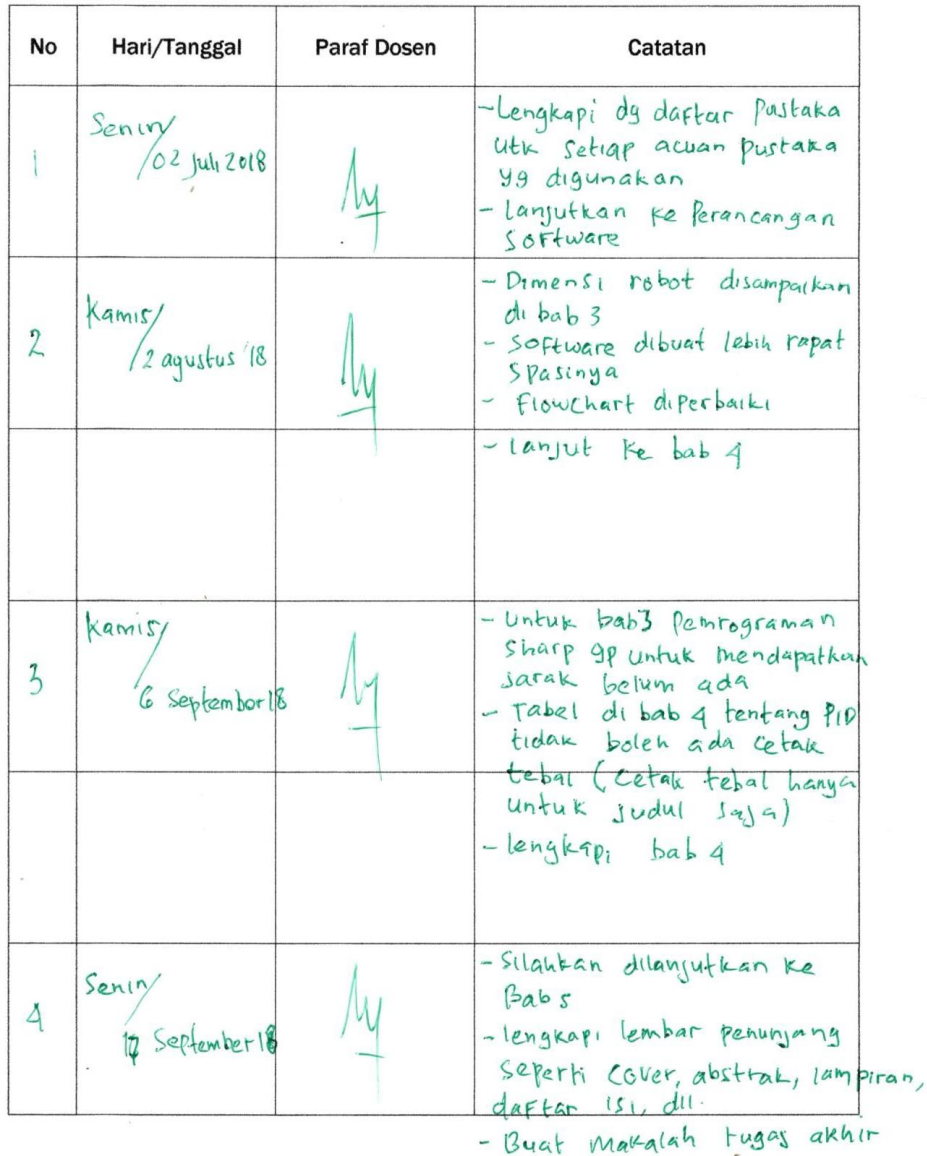 No Hari/Tanggal Paraf Dosen Catatan
1 Senin/ 02 Juli 2018
- Lengkapi dg daftar Pustaka
utk setiap acuan pustaka
yg digunakan
- Lanjutkan ke Perancangan
Software
2 Kamis/ 2 agustus '18
- Dimensi robot disampaikan
di bab 3
- Software dibuat lebih rapat
Spasinya
- Flowchart diperbaiki
- lanjut ke bab 4
3 Kamis/ 6 September 18
- Untuk bab3 Pemrograman
Sharp gp untuk mendapatkan
jarak belum ada
- Tabel di bab 4 tentang PID
tidak boleh ada cetak
tebal (cetak tebal hanya
untuk judul saja)
- lengkapi bab 4
4 Senin/ 17 September 18
- Silahkan dilanjutkan ke
Bab 5
- lengkapi lembar penunjang
seperti cover, abstrak, lampiran,
daftar isi, dll.
- Buat makalah tugas akhir